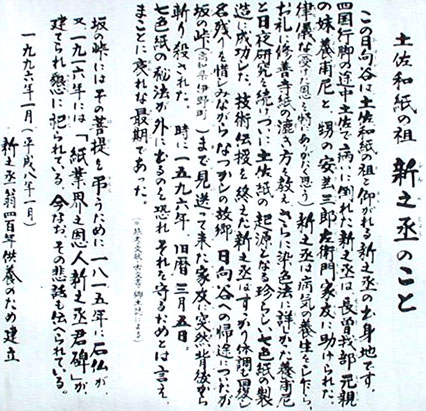 土佐和紙の祖 新之丞のこと
この日向谷は土佐和紙の祖と仰がれる新之丞の出身地です。
四国行脚の途中土佐で病に倒れた新之丞は、長曽我部元親
の妹養甫尼と、甥の安芸三郎左衛門家友に助けられた。
律儀な(受けた恩を特にありがたく思う)新之丞は病気の養生をしたら、
お礼に修善寺紙の漉き方を教え、さらに染色法に詳かな養甫尼
と日夜研究を続けついに土佐紙の起源となる珍らしい七色紙の製
造に成功した。技術伝授を終えた新之丞はすっかり体調も回復し
名残りを惜しみながらなつかしの故郷、日向谷への帰途についたが
坂の峠(高知県伊野町)まで見送って来た家友に突然背後から
斬り殺された。時に一五九六年、旧暦三月五日。
七色紙の秘法が外にもるのを恐れ、それを守るためとは言え、
まことに哀れな最期であった。
坂の峠にはその菩提を弔うために一八一五年に石仏が、
又一九一六年には「紙業界之恩人新之丞君碑」が、
建てられ懇に祀られている。今なお、その悲話も伝へられている。
一九九六年一月(平成八年一月)
新之丞翁四百年供養のため建立